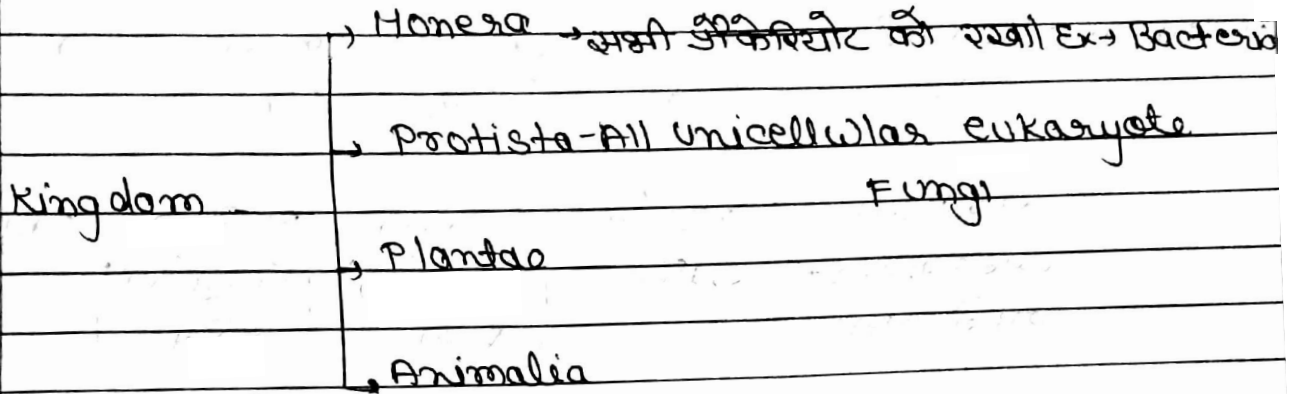 → Monera → सभी प्रोकेरियोट को रखा। Ex → Bacteria
→ Protista - All unicellular eukaryote
Kingdom
Fungi
→ Plantae
→ Animalia